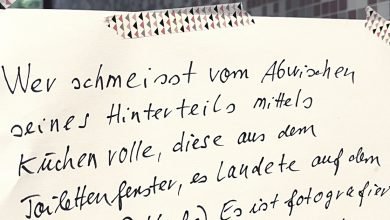 Wer schmeisst vom Abwischen
seines Hinterteils mittels
Küchenrolle, diese aus dem
Toilettenfenster, es landete auf dem
Es ist fotografier